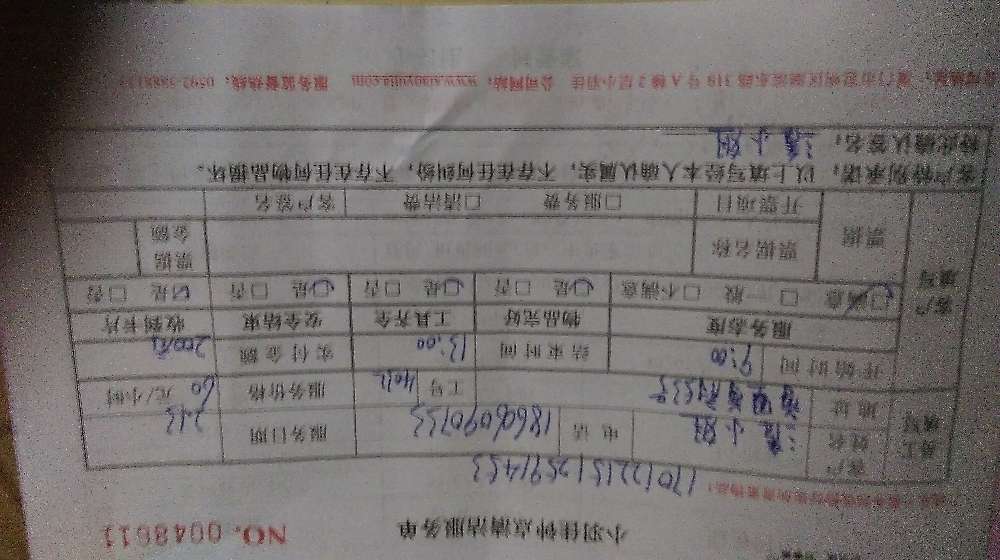 小羽佳钟点清洁服务单 NO. 0048611
1701221512591453
员工填写 客户姓名 电话 18606090733 服务日期 2.13
地址 工号 4012 服务价格 60 元/小时
开始时间 9:00 结束时间 13:00 实付金额 200元
客户填写 服务态度 物品完好 工具齐全 安全结束 收到卡片
□满意 □一般 □不满意 □是 □否 □是 □否 □是 □否 □是 □否
票据 票据名称 票据金额
开票项目 □服务费 □清洁费 客户签名
客户特别承诺：以上填写经本人确认属实，不存在任何纠纷，不存在任何物品损坏。
特此确认签名：
厦门市思明区湖滨东路 319 号 A 幢 2 层小羽佳 公司网站：www.xiaoyujia.com 服务监督热线：0592-